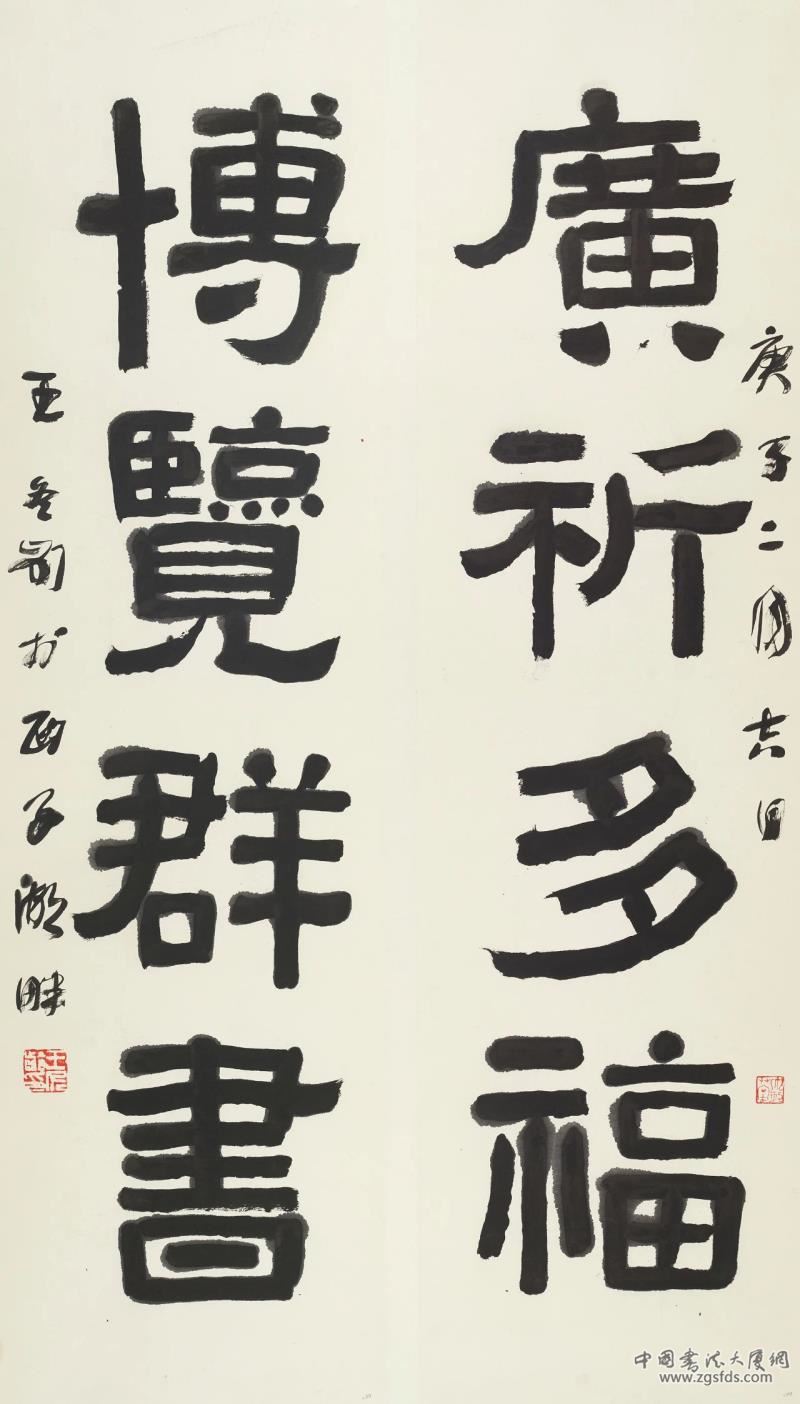 庚子二月吉日
廣祈多福
博覽群書
王冬齡於西子湖畔
中国书法大厦網
www.zgsfds.com